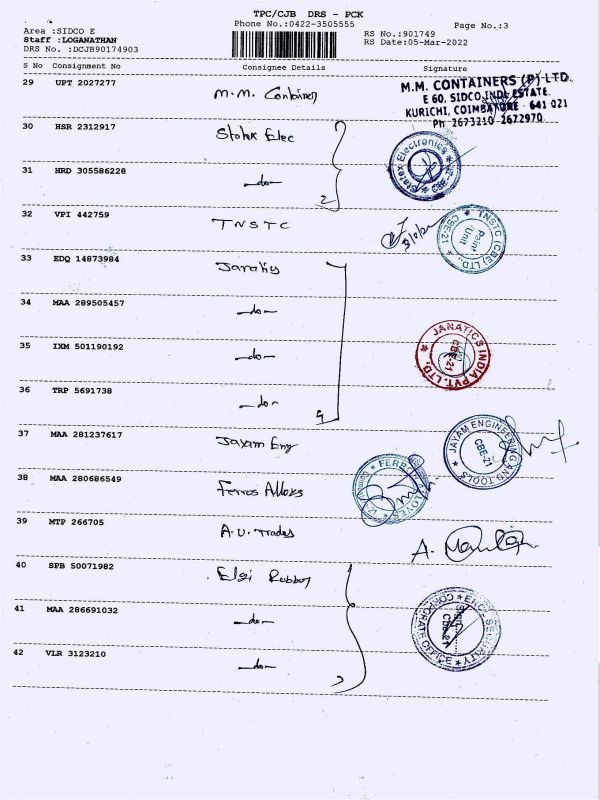 TPC/CJB DRS - PCK
Phone No.:0422-3505555
Page No.:3
Area :SIDCO E
Staff :LOGANATHAN
DRS No. :DCJB90174903
RS No.:901749
RS Date:05-Mar-2022
S No Consignment No Consignee Details Signature
29 UPT 2027277 M.M. Container
M.M. CONTAINERS (P) LTD.
E 60, SIDCO INDL ESTATE.
KURICHI, COIMBATORE - 641 021
Ph 2673210 2672970
30 HSR 2312917 Statex Elec
Statex Electronics ★ CBE-21 ★
31 HRD 305586228 —do—
2
32 VPI 442759 TNSTC
TNSTC (CBE) LTD., CBE-21 ★
Paint Unit
33 EDQ 14873984 Janatics
34 MAA 289505457 —do—
35 IXM 501190192 —do—
JANATICS INDIA PVT. LTD., ★
CBE-21
36 TRP 5691738 —do—
4
37 MAA 281237617 Jayam Eng
JAYAM ENGINEERING AND TOOLS ★
CBE-21
38 MAA 280686549 Ferros Alloyes
39 MTP 266705 A.U. Trades
A.
40 SPB 50071982 Elgi Rubber
41 MAA 286691032 —do—
SECURITY ★ CORPORATE OFFICE ★
42 VLR 3123210 —do—